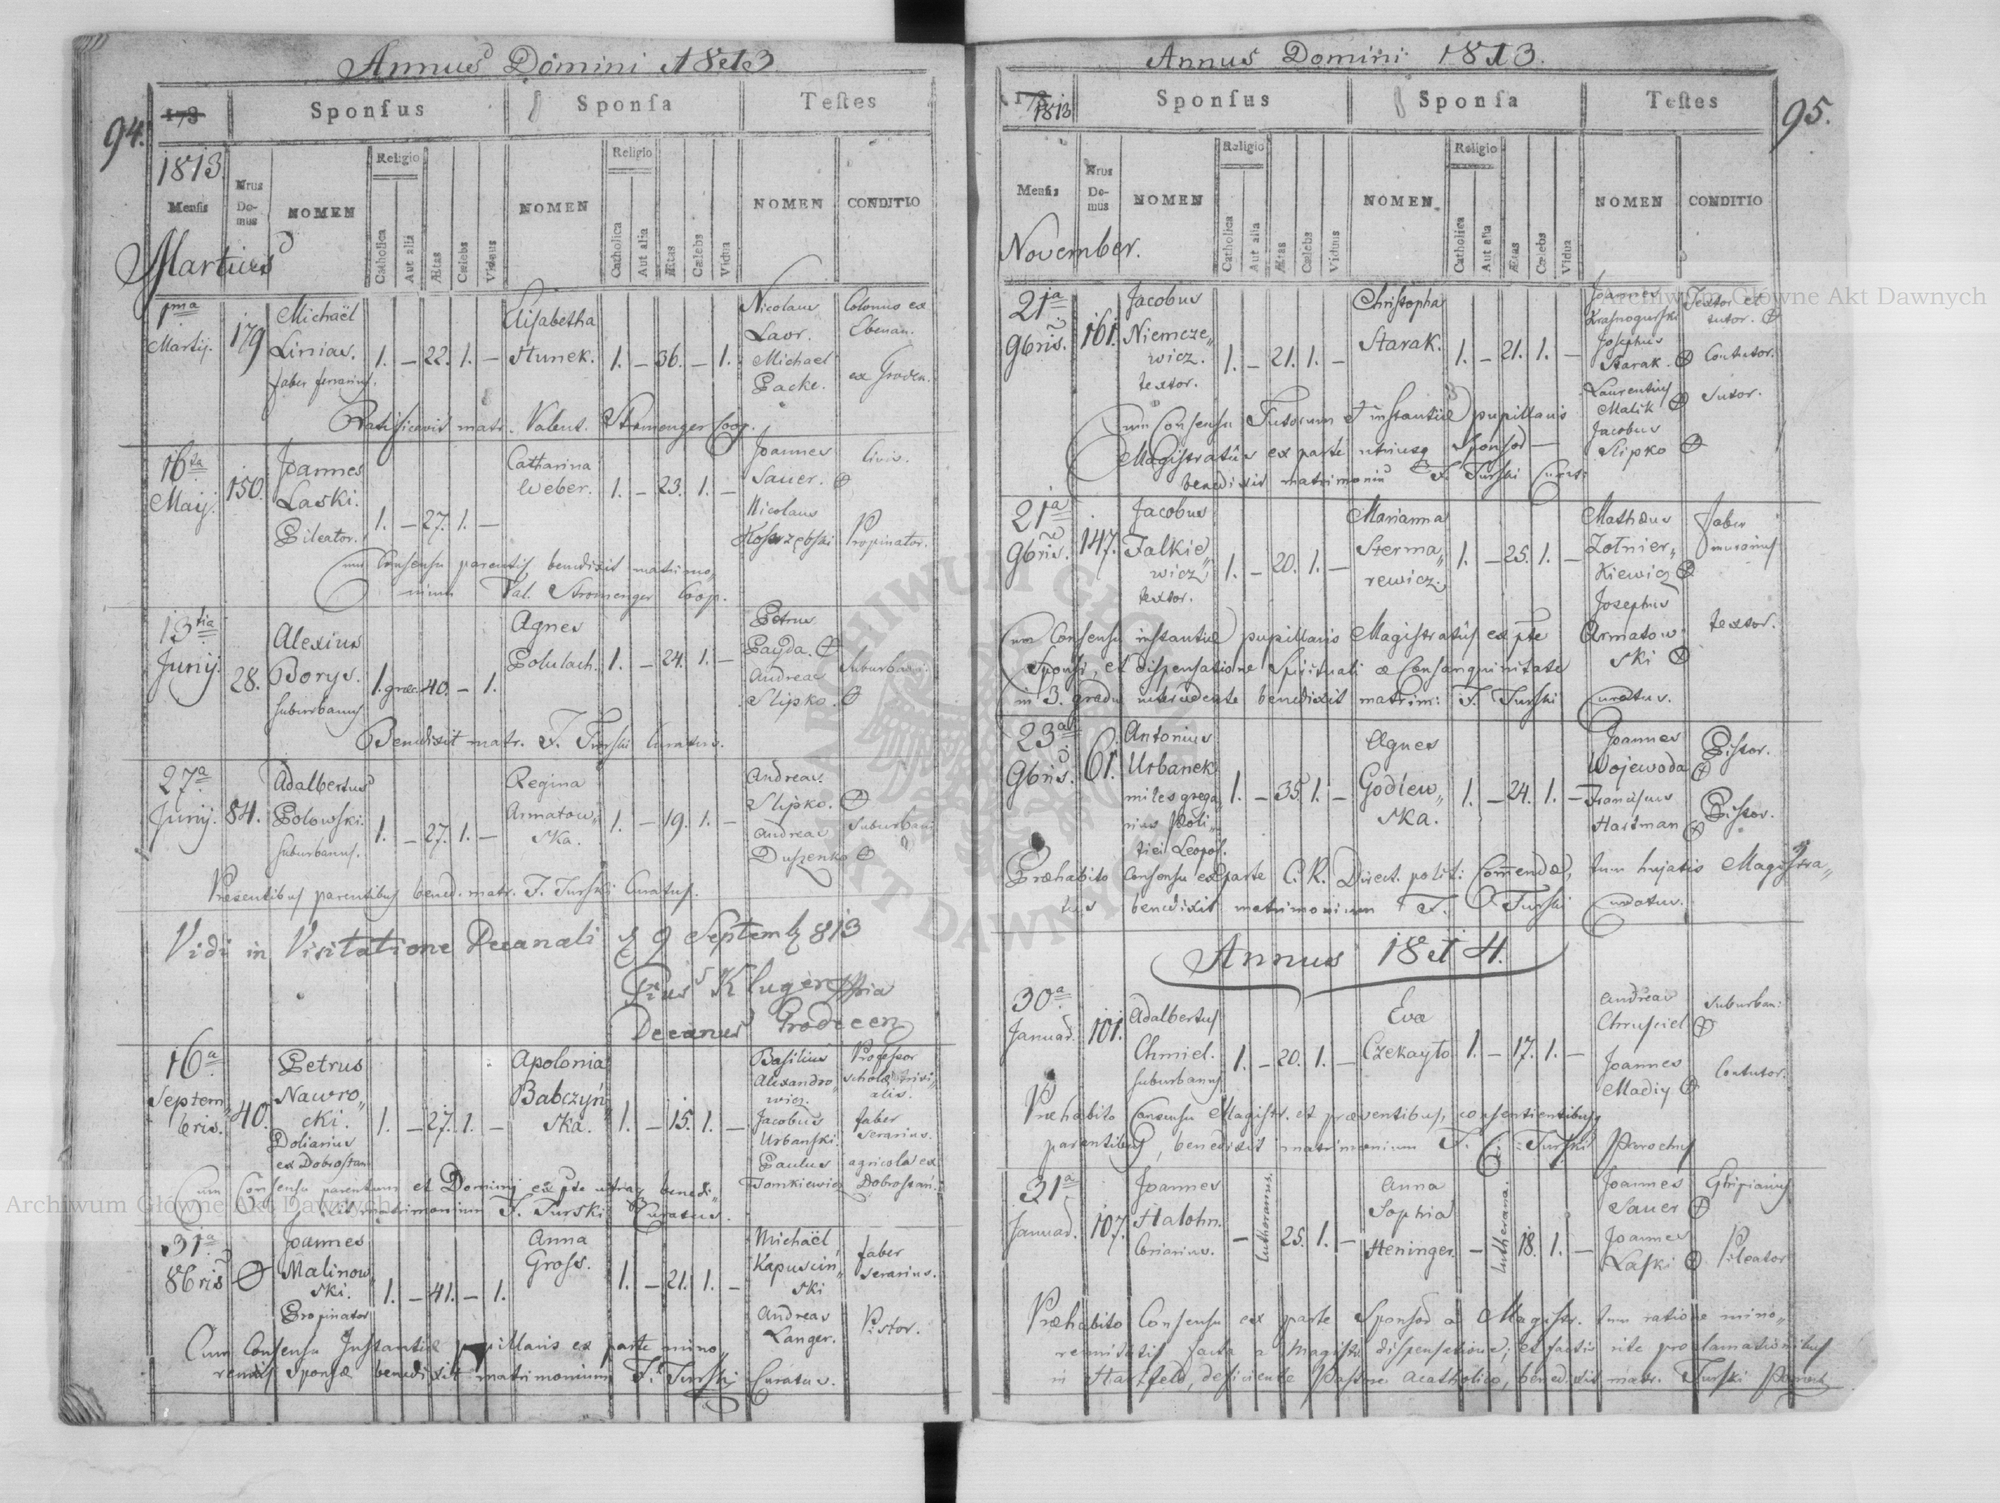 Annus Domini 1813
94.
173
Sponsus
Sponsa
Testes
1813.
Mensis
Nrus Domus
NOMEN
Religio
Catholica
Aut alia
Ætas
Cœlebs
Viduus
NOMEN
Religio
Catholica
Aut alia
Ætas
Cœlebs
Vidua
NOMEN
CONDITIO
Martius
1ma Martij. 179 Michaël Linias. faber ferrarius. 1. – 22. 1. – Elisabetha Hunek. 1. – 36. – 1.
Nicolaus Laor. Colonus ex
Michael Packe. ex Groden.
Ratificavit matr. Valent. Stromenger Coop.
16ta Maij. 150. Joannes Laski. Pileator. 1. – 27. 1. – Catharina Weber. 1. – 23. 1. –
Joannes Sauer. Civis.
Nicolaus Kosrzębski Propinator.
Cum Consensu parentis benedixit matrimo„
nium Val. Stromenger Coop.
13tia Junij. 28. Alexius Borys. suburbanus 1. græc. 40. – 1. Agnes Polulach. 1. – 24. 1. –
Petrus Payda.
Andreas Slipko. suburbani
Benedixit matr. F. Turski Curatus.
27a Junij. 84. Adalbertus Polowski. suburbanus. 1. – 27. 1. – Regina Armatow„ska. 1. – 19. 1. –
Andreas Slipko.
Andreas Duszenko suburbani
Presentibus parentibus bened. matr. F. Turski Curatus.
Vidi in Visitatione Decanali d 9 Septemb 813
Pius Kluger mpria
Decanus Grodecen
16a Septem„bris. 40. Petrus Nawro„cki. Doliarius ex Dobrostan 1. – 27. 1. – Apolonia Babczyń„ska. 1. – 15. 1. –
Basilius Alexandro„wicz. Professor scholæ trivi„alis.
Jacobus Urbanski. faber serarius.
Paulus Tomkiewicz agricola ex Dobrostan.
Cum Consensu parentum et Dominij ex pte utraq benedi„
xit matrimonium F. Turski Curatus.
31a 8bris Joannes Malinow„ski. Propinator 1. – 41. – 1. Anna Gross. 1. – 21. 1. –
Michaël Kapuściń„ski faber serarius.
Andreas Langer. Pistor.
Cum Consensu Instantiæ pupillaris ex parte mino„
rennis Sponsæ benedixit matrimonium F. Turski Curatus.
Annus Domini 1813.
95.
173
1813
Sponsus
Sponsa
Testes
Mensis
Nrus Domus
NOMEN
Religio
Catholica
Aut alia
Ætas
Cœlebs
Viduus
NOMEN.
Religio
Catholica
Aut alia
Ætas
Cœlebs
Vidua
NOMEN
CONDITIO
November.
21a 9bris. 161. Jacobus Niemcze„wicz. textor. 1. – 21. 1. – Christopha Starak. 1. – 21. 1. –
Joannes Krasnogurski Textor et tutor.
Josephus Starak. Contutor.
Laurentius Malik Sutor.
Jacobus Slipko
Cum Consensu Tutorum & instantiæ pupillaris
Magistratûs ex parte utriusq Sponsor
benedixit matrimoniũ F. Turski Curat:
21a 9bris. 147. Jacobus Falkie„wicz textor. 1. – 20. 1. – Marianna Sterma„rewicz. 1. – 25. 1. –
Mathæus Żołnier„kiewicz Faber murarius
Josephus Armatow„ski textor.
Cum Consensu instantiæ pupillaris Magistratûs ex pte
Sponsi, et dispensatione Spirituali a Consanguinitate
in 3. gradu intercedente benedixit matrim: F. Turski Curatus.
23a 9bris. 61. Antonius Urbanek miles grega„rius Poli„tici Leopol. 1. – 35. 1. – Agnes Godlew„ska. 1. – 24. 1. –
Joannes Wojewoda Pistor.
Franciscus Hartman Pistor.
Præhabito Consensu ex parte C. R. Direct. polit: Comendæ, tum hujatis Magistra„
tus benedixit matrimonium F. Turski Curatus.
Annus 1814.
30a Januar. 101. Adalbertus Chmiel. suburbanus 1. – 20. 1. – Eva Czekayło 1. – 17. 1. –
Andreas Chrusciel suburban:
Joannes Madiy Contutor.
Præhabito Consensu Magistr. et præventibus, consentientibusq
parentibus, benedixit matrimonium F. Turski Parochus
31a Januar. 107. Joannes Halohn. Coriarius. – Lutheranus. 25. 1. – Anna Sophia Heninger. – Lutherana. 18. 1. –
Joannes Sauer
Joannes Laski Pileator
Præhabito Consensu ex parte Sponsor a Magistr. tum ratione mino„
rennitatis facta a Magistr dispensatione, et factis rite proclamationibus
in Hartfeld, deficiente Pastore acatholico, benedixit matr. Turski Paroch
Archiwum Główne Akt Dawnych
Archiwum Główne Akt Dawnych
ARCHIWUM GŁÓWNE AKT DAWNYCH